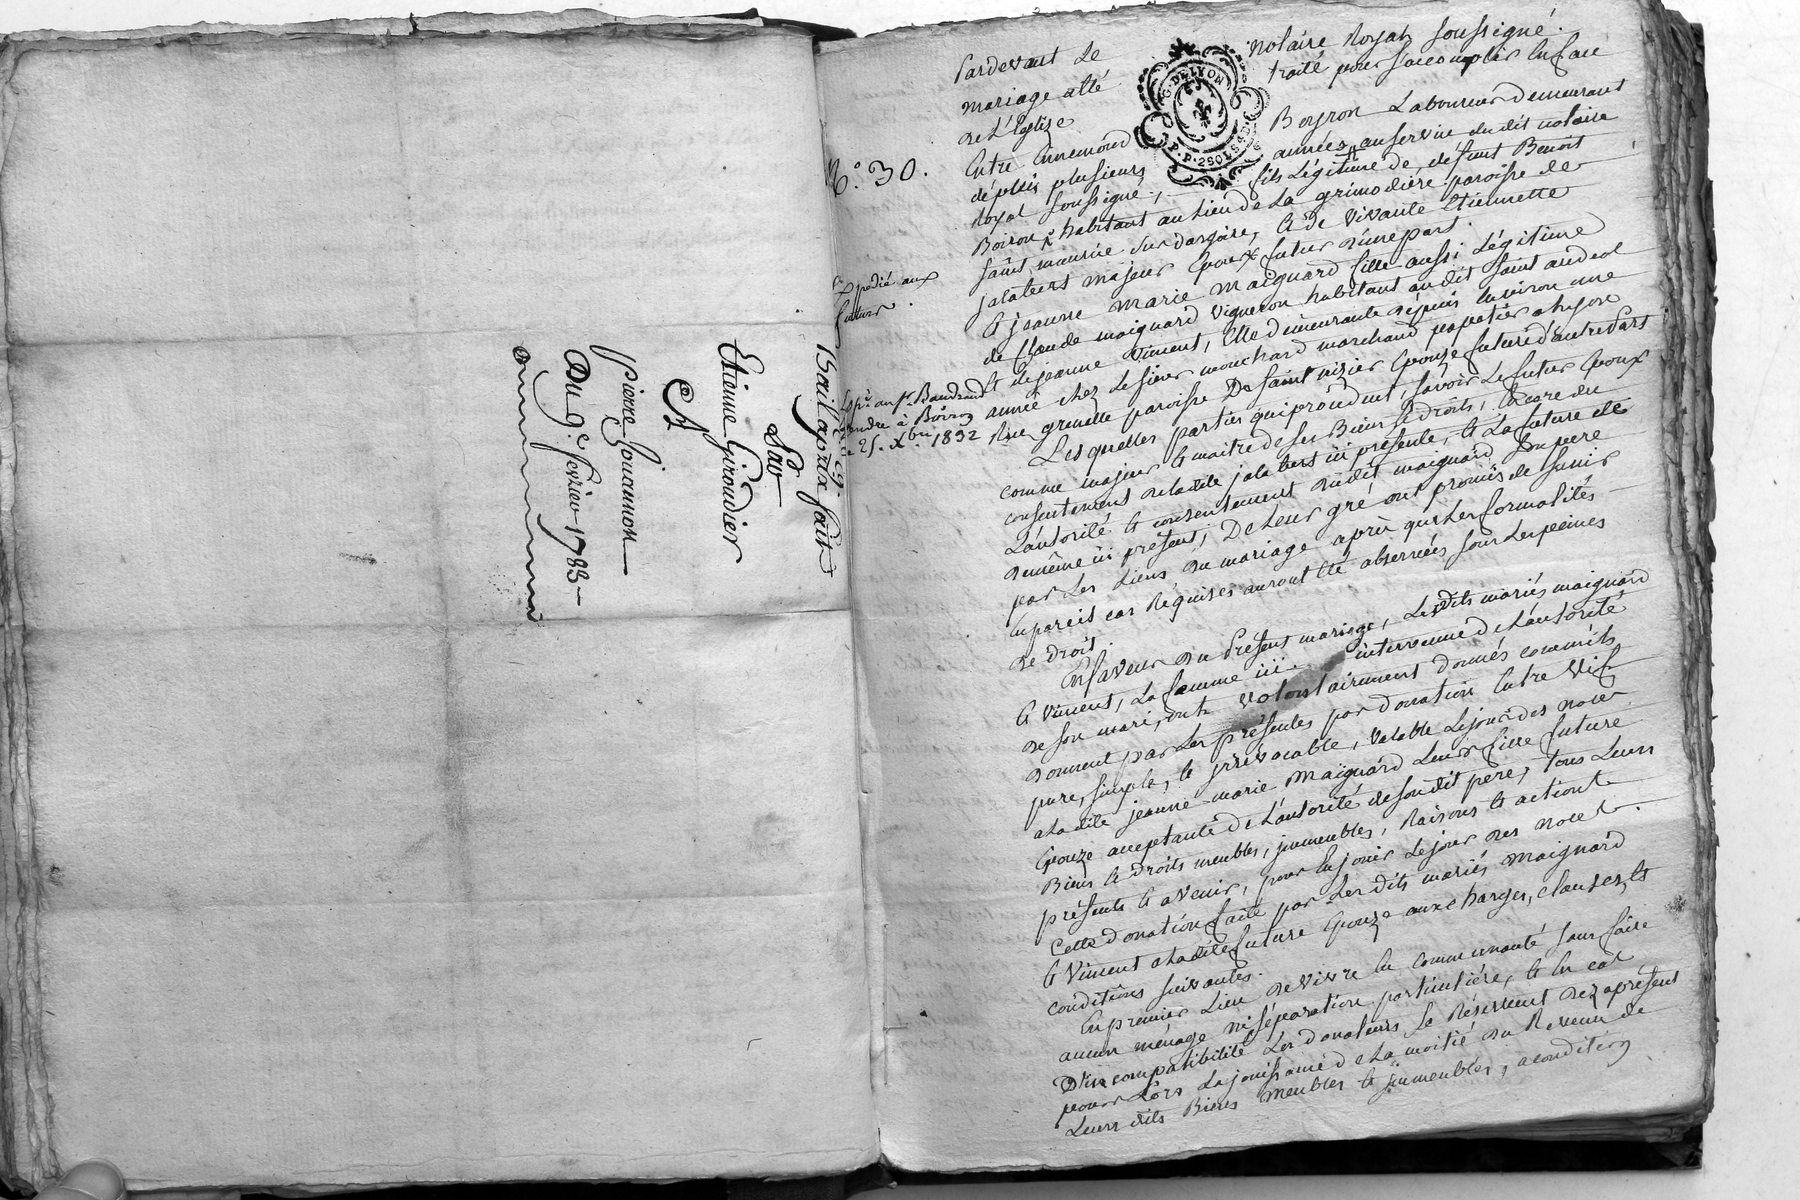 Bail aprix fait
Par
Etienne Giroudier
A
pierre Gouannon
Du 9.e fevrier 1783
N.o 30.
Expedié aux
futurs.
Exp.e au s.r Baudrand
gendre à Boiron
le 25. Xbre 1832
Pardevant Le notaire Royal soussigné.
mariage a été traité pour s'accomplir en face
de L'Eglize
Entre Ennemond Boyron Laboureur demeurant
dépuis plusieurs années au service du dit notaire
Royal soussigné, fils Légitime de défunt Benoit
Boiron habitant au Lieu de La grimodiére paroisse de
saint maurice sur dargoire, & de vivante Etiennette
jalabert majeur Epoux futur d'une part.
& jeanne marie maignard fille aussi Légitime
de Claude maignard vigneron habitant au dit saint andeol
& de jeanne viment, Elle demeurante dépuis Environ une
année chez Le sieur mouchard marchand papetier a Lyon
Rue grenette paroisse De saint nizier Epouze future d'autre part
Lesquelles parties qui procédent, savoir Le futur Epoux
comme majeur & maitre de ses Biens & droits, Encore du
consentement de ladite jalabert ici présente, & La future de
L'autorité & consentement du dit maignard son pere
de même ici présent, De Leur gré ont promis de s'unir
par Les Liens du mariage après que Les formalités
En pareil cas Réquises auront été observées sous Les peines
de droit.
En faveur du Présent mariage, Lesdits mariés maignard
& viment, La femme ici intervenue de L'autorité
de son mari, ont volontairement donnés comm'ils
donnent par Les présentes par donation Entre Vif
pure, simple, & jrrévocable, valable Le jour des noces
a Ladite jeanne marie Maignard Leur fille future
Epouze acceptante de L'autorité de son dit pere, tous Leurs
Biens & droits meubles, jmmeubles, Raisons & actions
présents & avenir, pour En jouir Le jour des noces.
Cette donation faite par Les dits mariés Maignard
& Viment a Ladite future Epouze aux charges, clauses, &
conditions suivantes.
En premier Lieu de vivre En communauté sans faire
aucun ménage ni séparation particuliére, & En cas
D'incompatibilité Les donateurs se Réservent dez aprésent
pour Lors La jouissance de La moitié du Revenu de
Leurs dits Biens meubles & jmmeubles, a condition
G. DE LYON
P.P. 2 SOLS 4 D